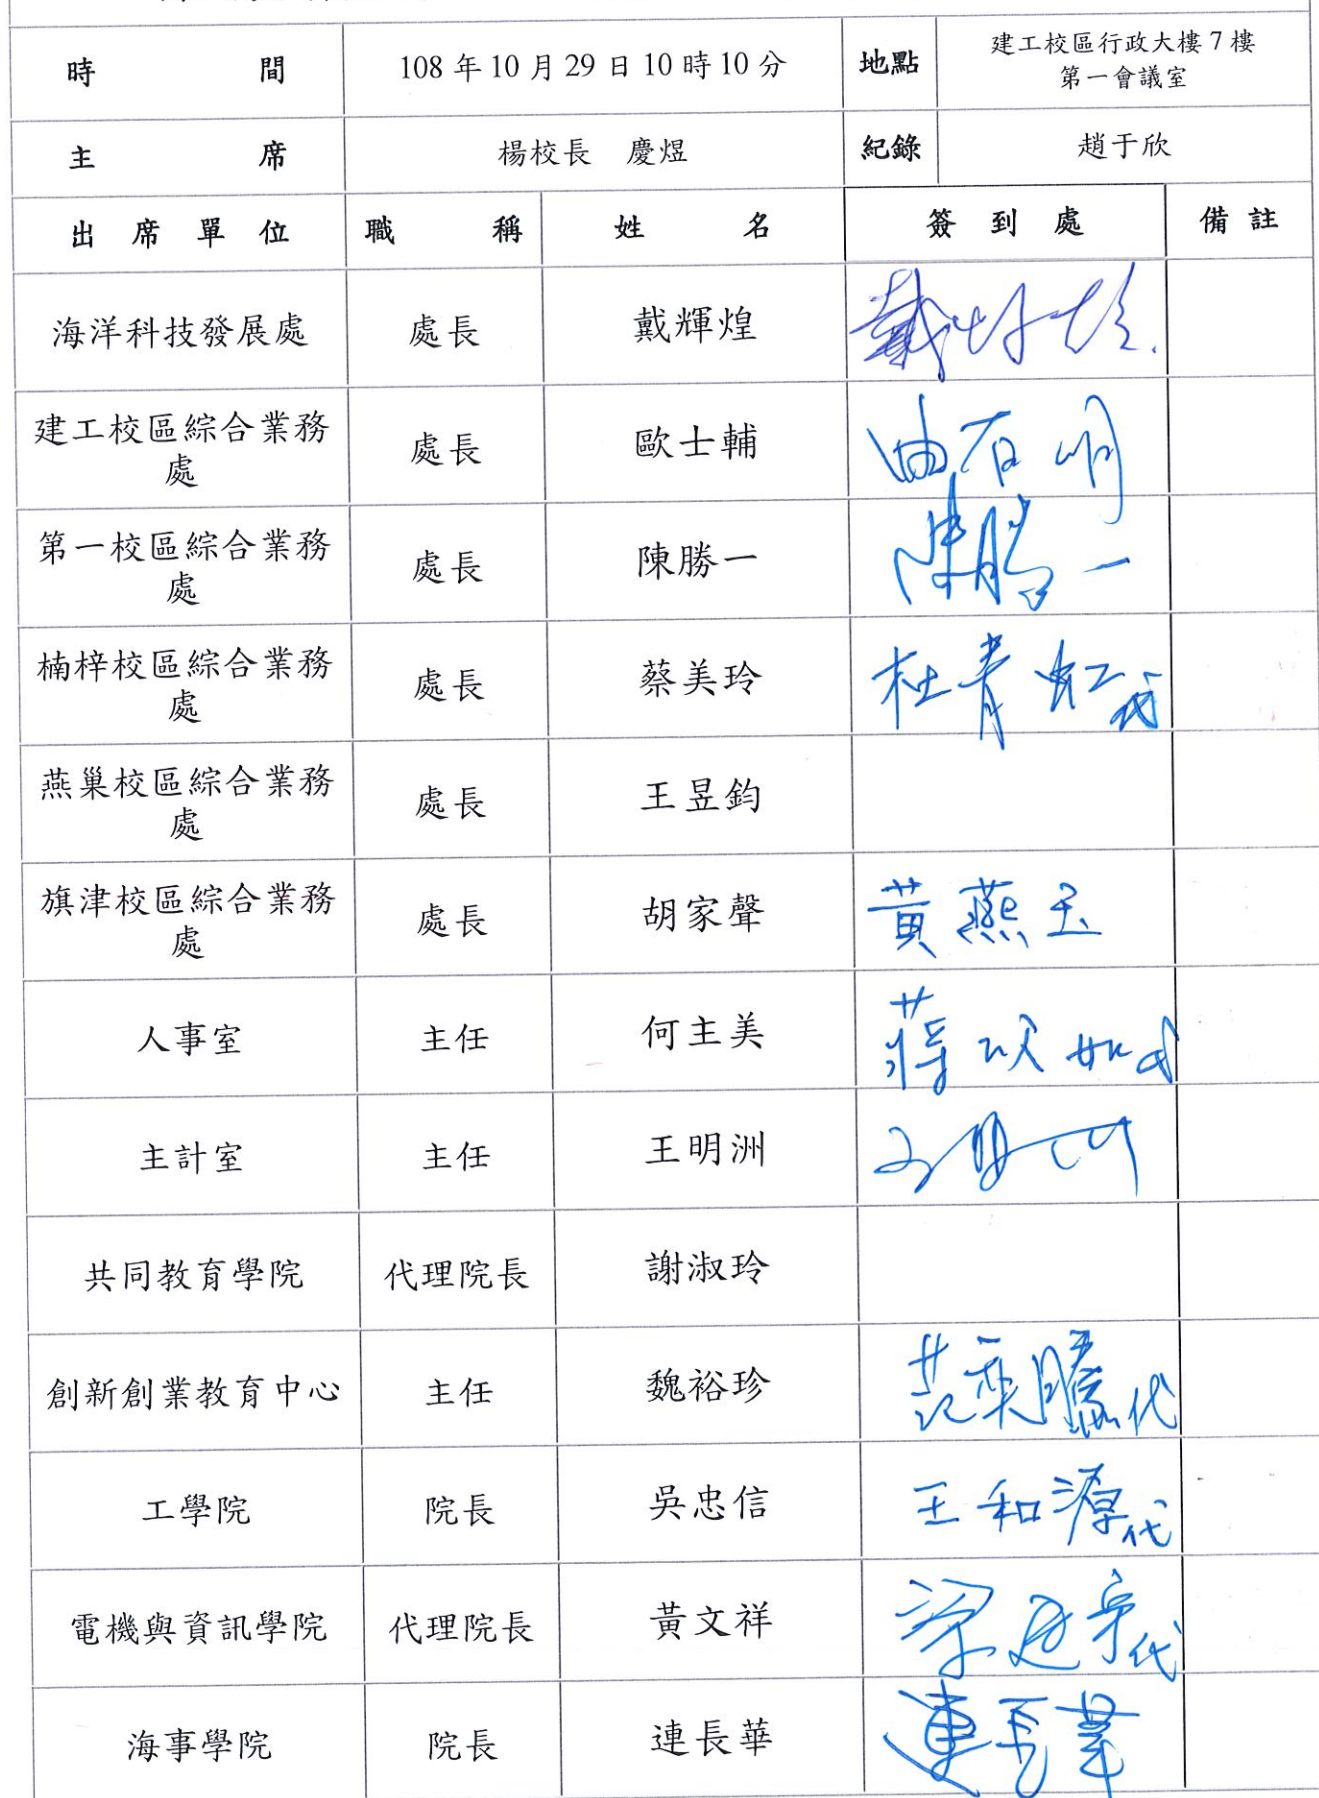 時間 108 年 10 月 29 日 10 時 10 分 地點 建工校區行政大樓 7 樓
第一會議室
主席 楊校長 慶煜 紀錄 趙于欣
出席單位 職稱 姓名 簽到處 備註
海洋科技發展處 處長 戴輝煌 戴
建工校區綜合業務
處 處長 歐士輔
第一校區綜合業務
處 處長 陳勝一 陳勝一
楠梓校區綜合業務
處 處長 蔡美玲 杜青虹代
燕巢校區綜合業務
處 處長 王昱鈞
旗津校區綜合業務
處 處長 胡家聲 黃燕玉
人事室 主任 何主美 蔣如代
主計室 主任 王明洲 王明洲
共同教育學院 代理院長 謝淑玲
創新創業教育中心 主任 魏裕珍 范代
工學院 院長 吳忠信 王和源代
電機與資訊學院 代理院長 黃文祥 梁廷宇代
海事學院 院長 連長華 連長華